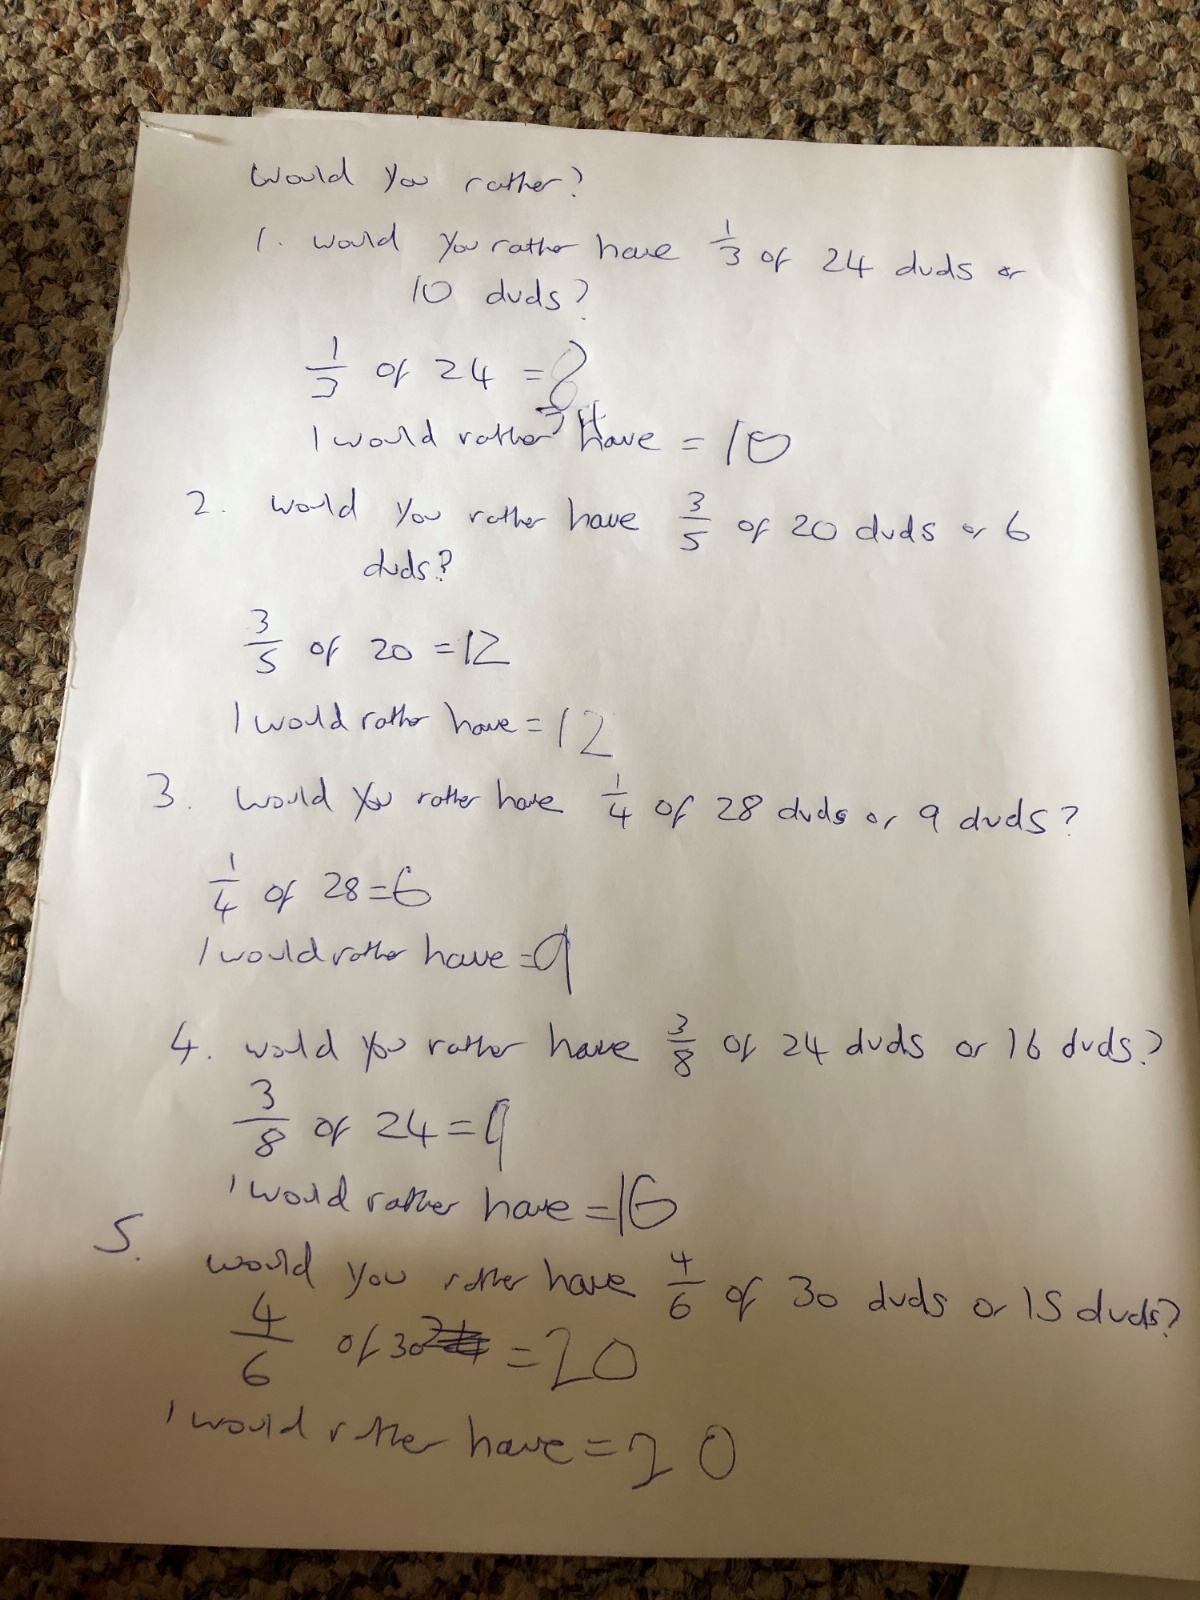 Would you rather?
1. would you rather have 1/3 of 24 duds or
10 duds?
1/3 of 24 = 8
I would rather have = 10
2. would you rather have 3/5 of 20 duds or 6
duds?
3/5 of 20 = 12
I would rather have = 12
3. would you rather have 1/4 of 28 duds or 9 duds?
1/4 of 28 = 6
I would rather have = 9
4. would you rather have 3/8 of 24 duds or 16 duds?
3/8 of 24 = 9
I would rather have = 16
5. would you rather have 4/6 of 30 duds or 15 duds?
4/6 of 30 = 20
I would rather have = 20